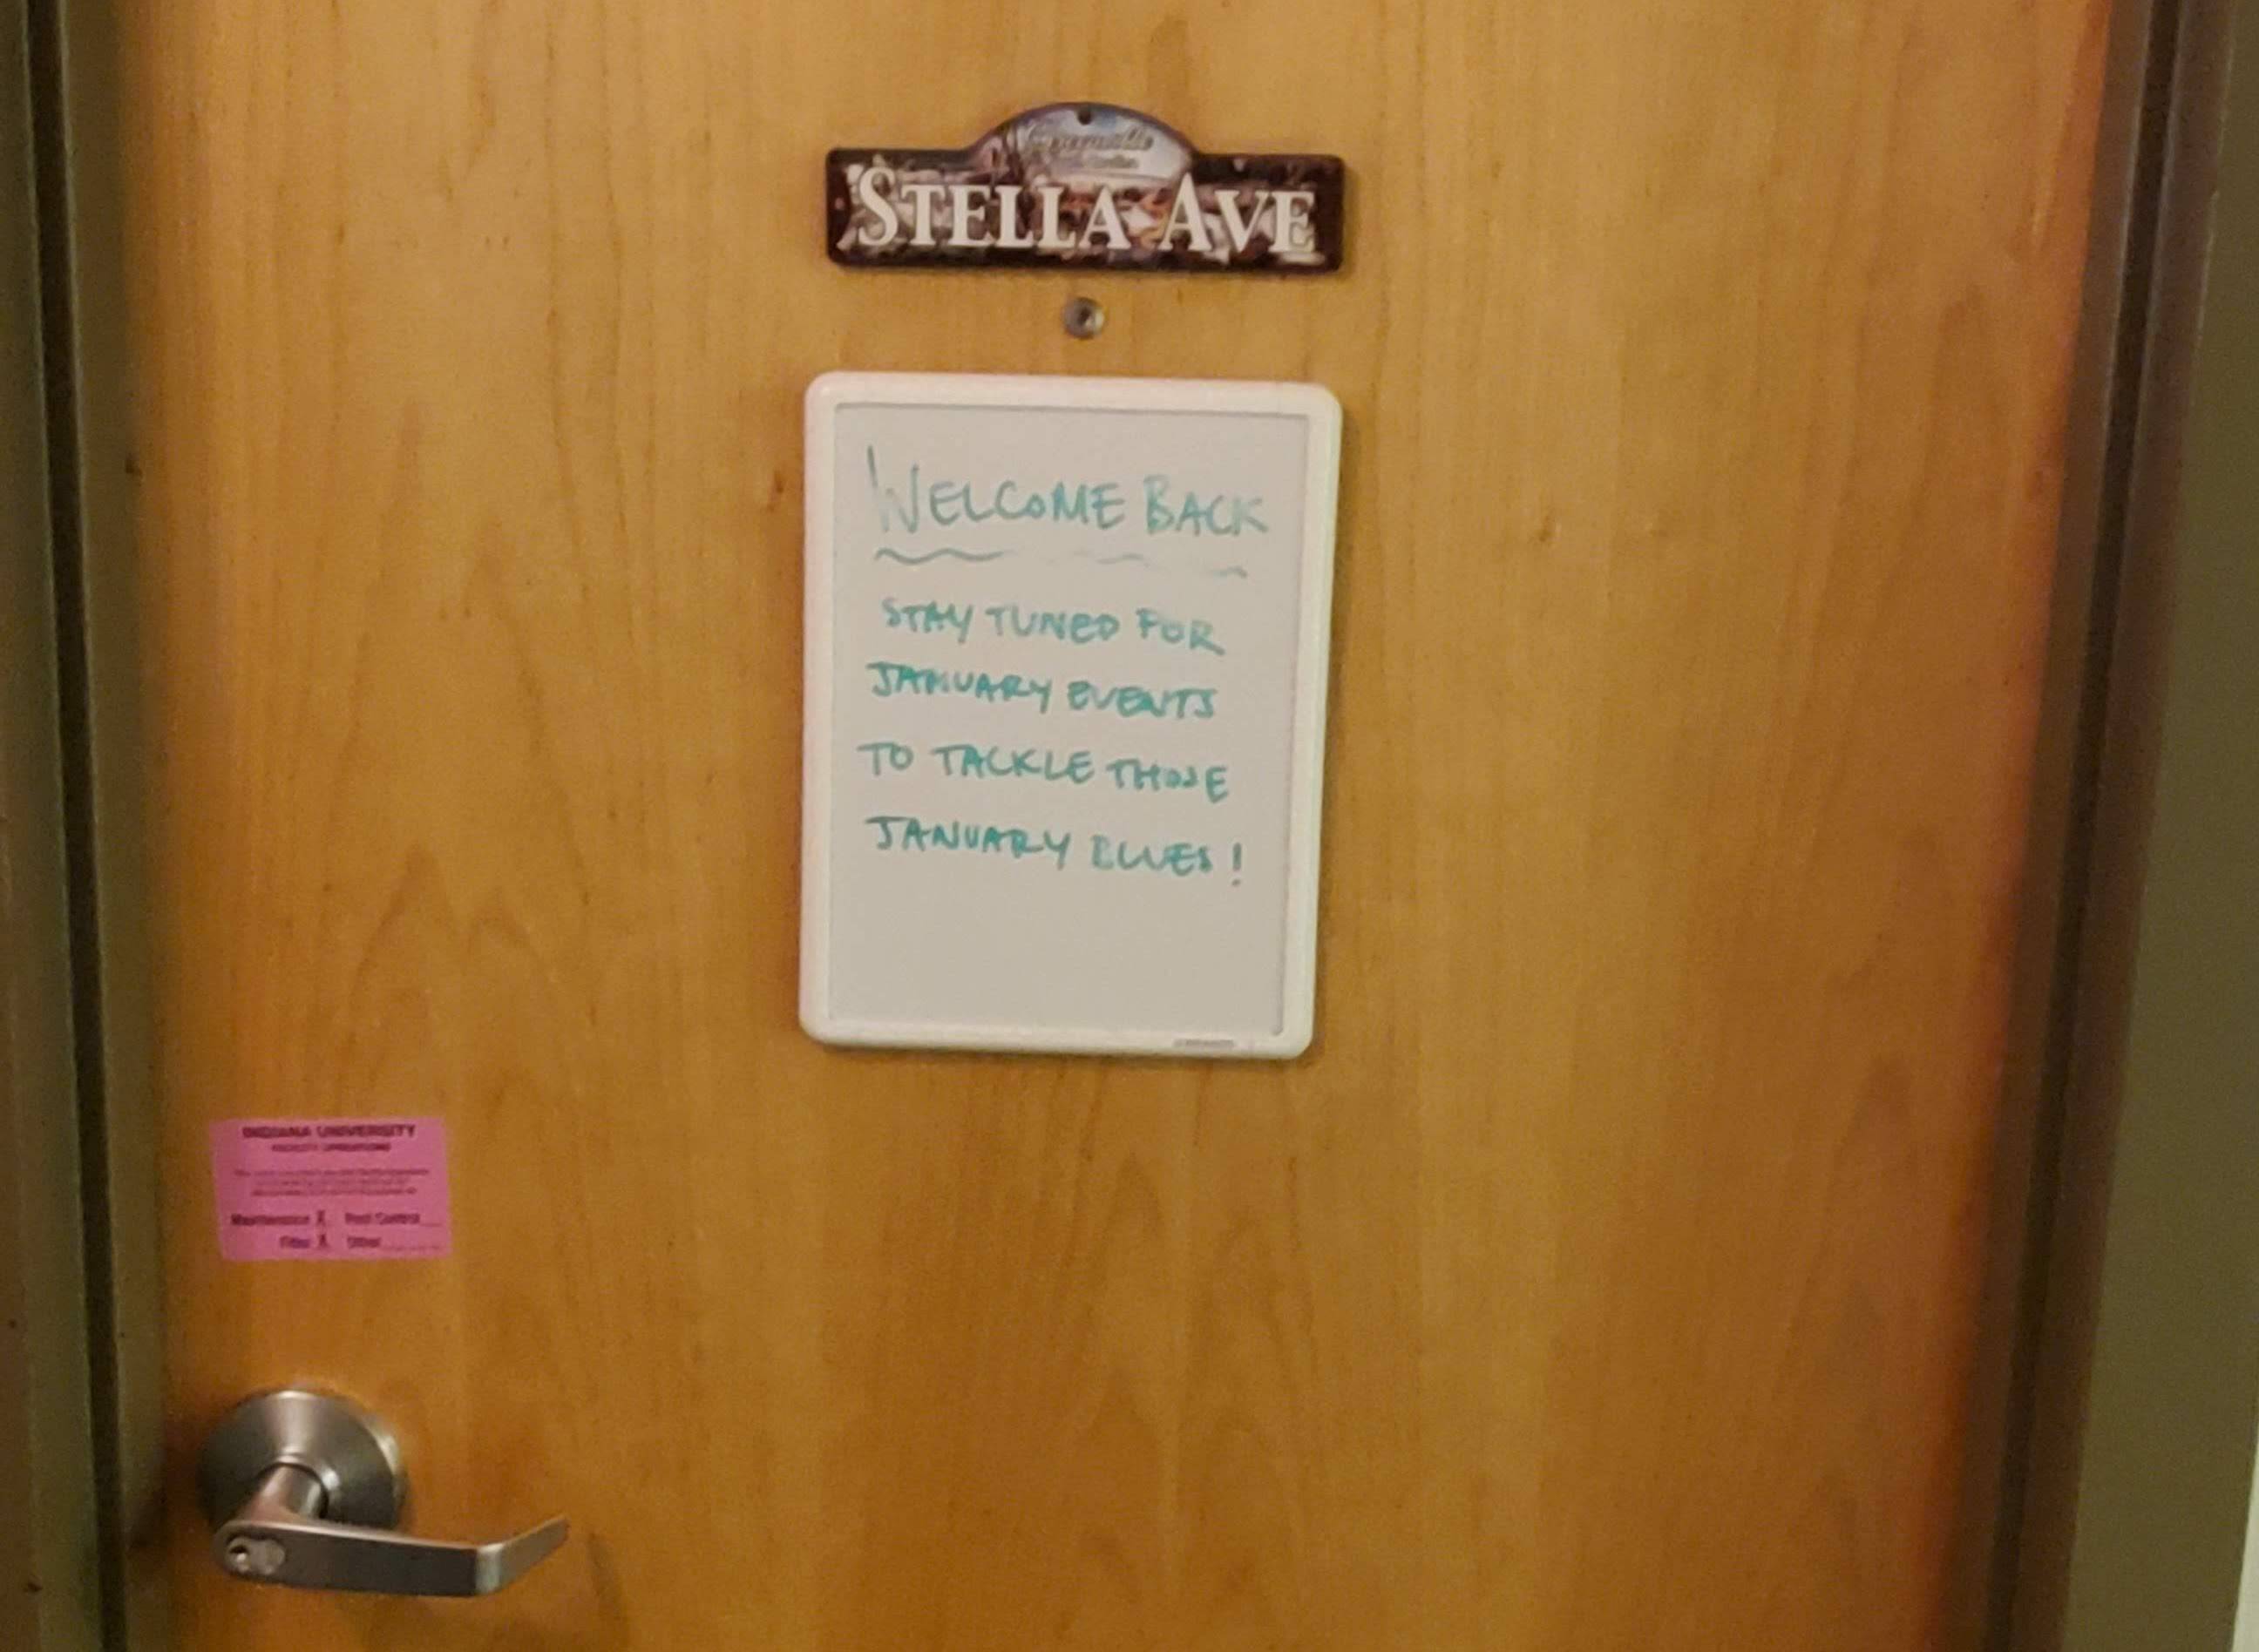 Greenville
STELLA AVE
WELCOME BACK
STAY TUNED FOR
JANUARY EVENTS
TO TACKLE THOSE
JANUARY BLUES!
INDIANA UNIVERSITY
FACILITY OPERATIONS
Maintenance X Pest Control
Filter X Other